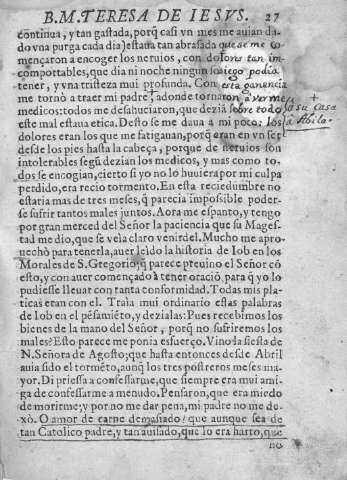 B. M. TERESA DE IESVS. 27
continua, y tan gastada, porq̃ casi vn mes me auian da-
do vna purga cada dia) estaua tan abrasada que se me co
mençaron a encoger los neruios, con dolores tan in-
comportables, que dia ni noche ningun sosiego podia
tener, y vna tristeza mui profunda. Con esta ganancia
me tornò a traer mi padre, adonde tornaron a verme
medicos: todos me desahuciaron, que dezia sobre todo
este mal estaua etica. Desto se me daua a mi poco: los
dolores eran los que me fatigauan, porq̃ eran en vn ser
desde los pies hasta la cabeça, porque de neruios son
intolerables segũ dezian los medicos, y mas como to-
dos se encogian, cierto si yo no lo huuiera por mi culpa
perdido, era recio tormento. En esta reciedumbre no
estaria mas de tres meses, q̃ parecia impossible poder-
se sufrir tantos males juntos. Aora me espanto, y tengo
por gran merced del Señor la paciencia que su Mages-
tad me dio, que se veia claro venir del. Mucho me apro-
uechò para tenerla, auer leìdo la historia de Iob en los
Morales de S. Gregorio; q̃ parece preuino el Señor cõ
esto, y con auer començado à tener oraciõ, para q̃ yo lo
pudiesse lleuar con tanta conformidad. Todas mis pla-
ticas eran con el. Traìa mui ordinario estas palabras
de Iob en el pẽsamiẽto, y dezialas: Pues recebimos los
bienes de la mano del Señor, porq̃ no sufriremos los
males? Esto parece me ponia esfuerço. Vino la fiesta de
N. Señora de Agosto; que hasta entonces desde Abril
auia sido el tormẽto, aunq̃ los tres postreros meses ma-
yor. Di priessa a confessarme, que siempre era mui ami-
ga de confessarme a menudo. Pensaron, que era miedo
de morirme; y por no me dar pena, mi padre no me de-
xò. O amor de carne demasiado! que aunque sea de
tan Catolico padre, y tan auisado, que lo era harto, que
+
a su casa
à Abila.